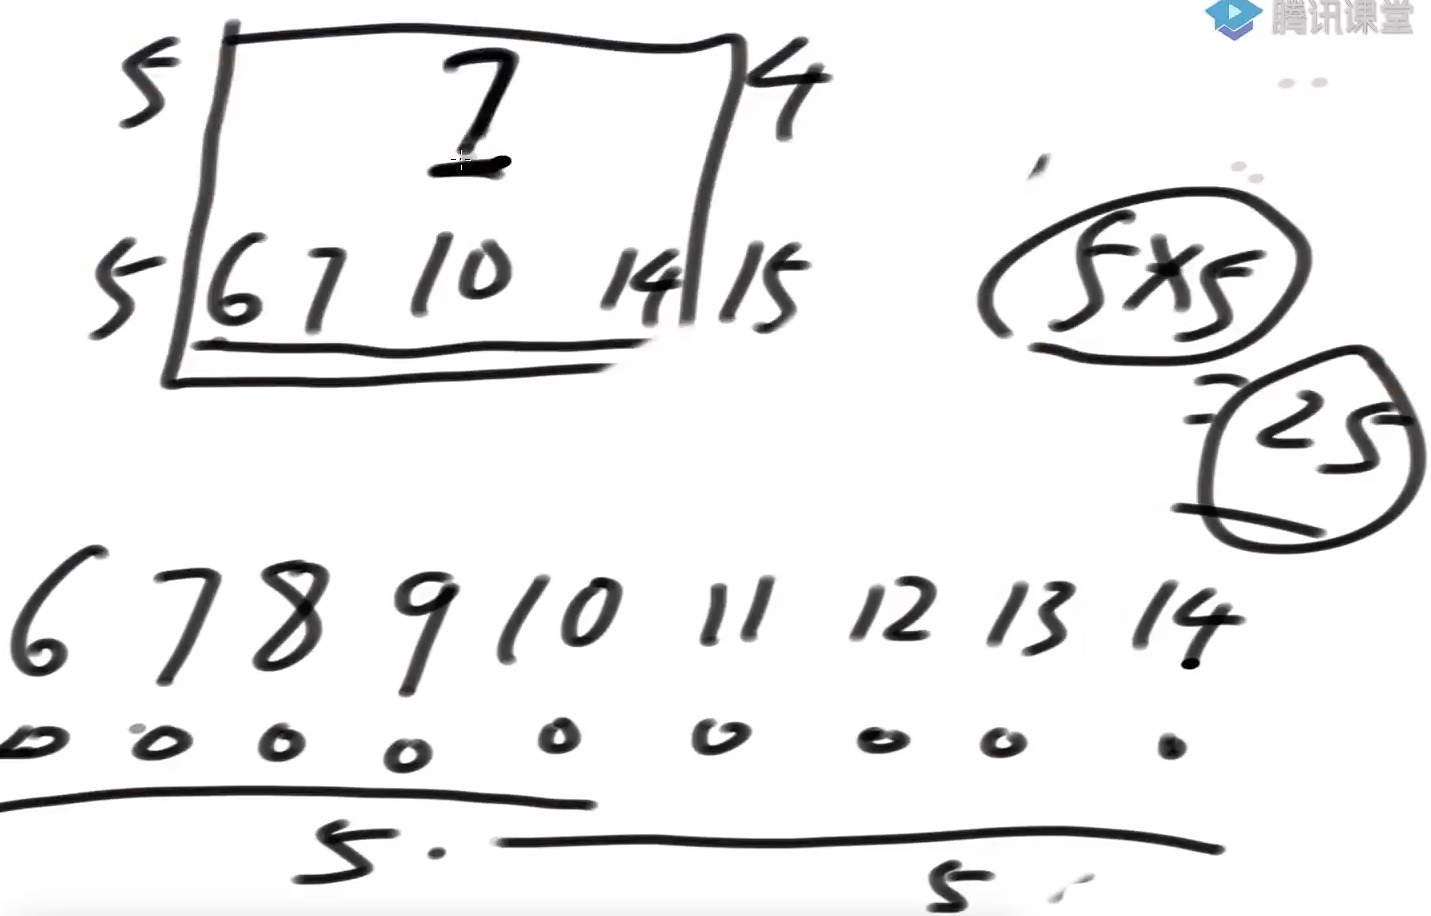 腾讯课堂
5 7 4
5 6 7 10 14 15
5×5
=25
6 7 8 9 10 11 12 13 14
0 0 0 0 0 0 0 0 0
5 5